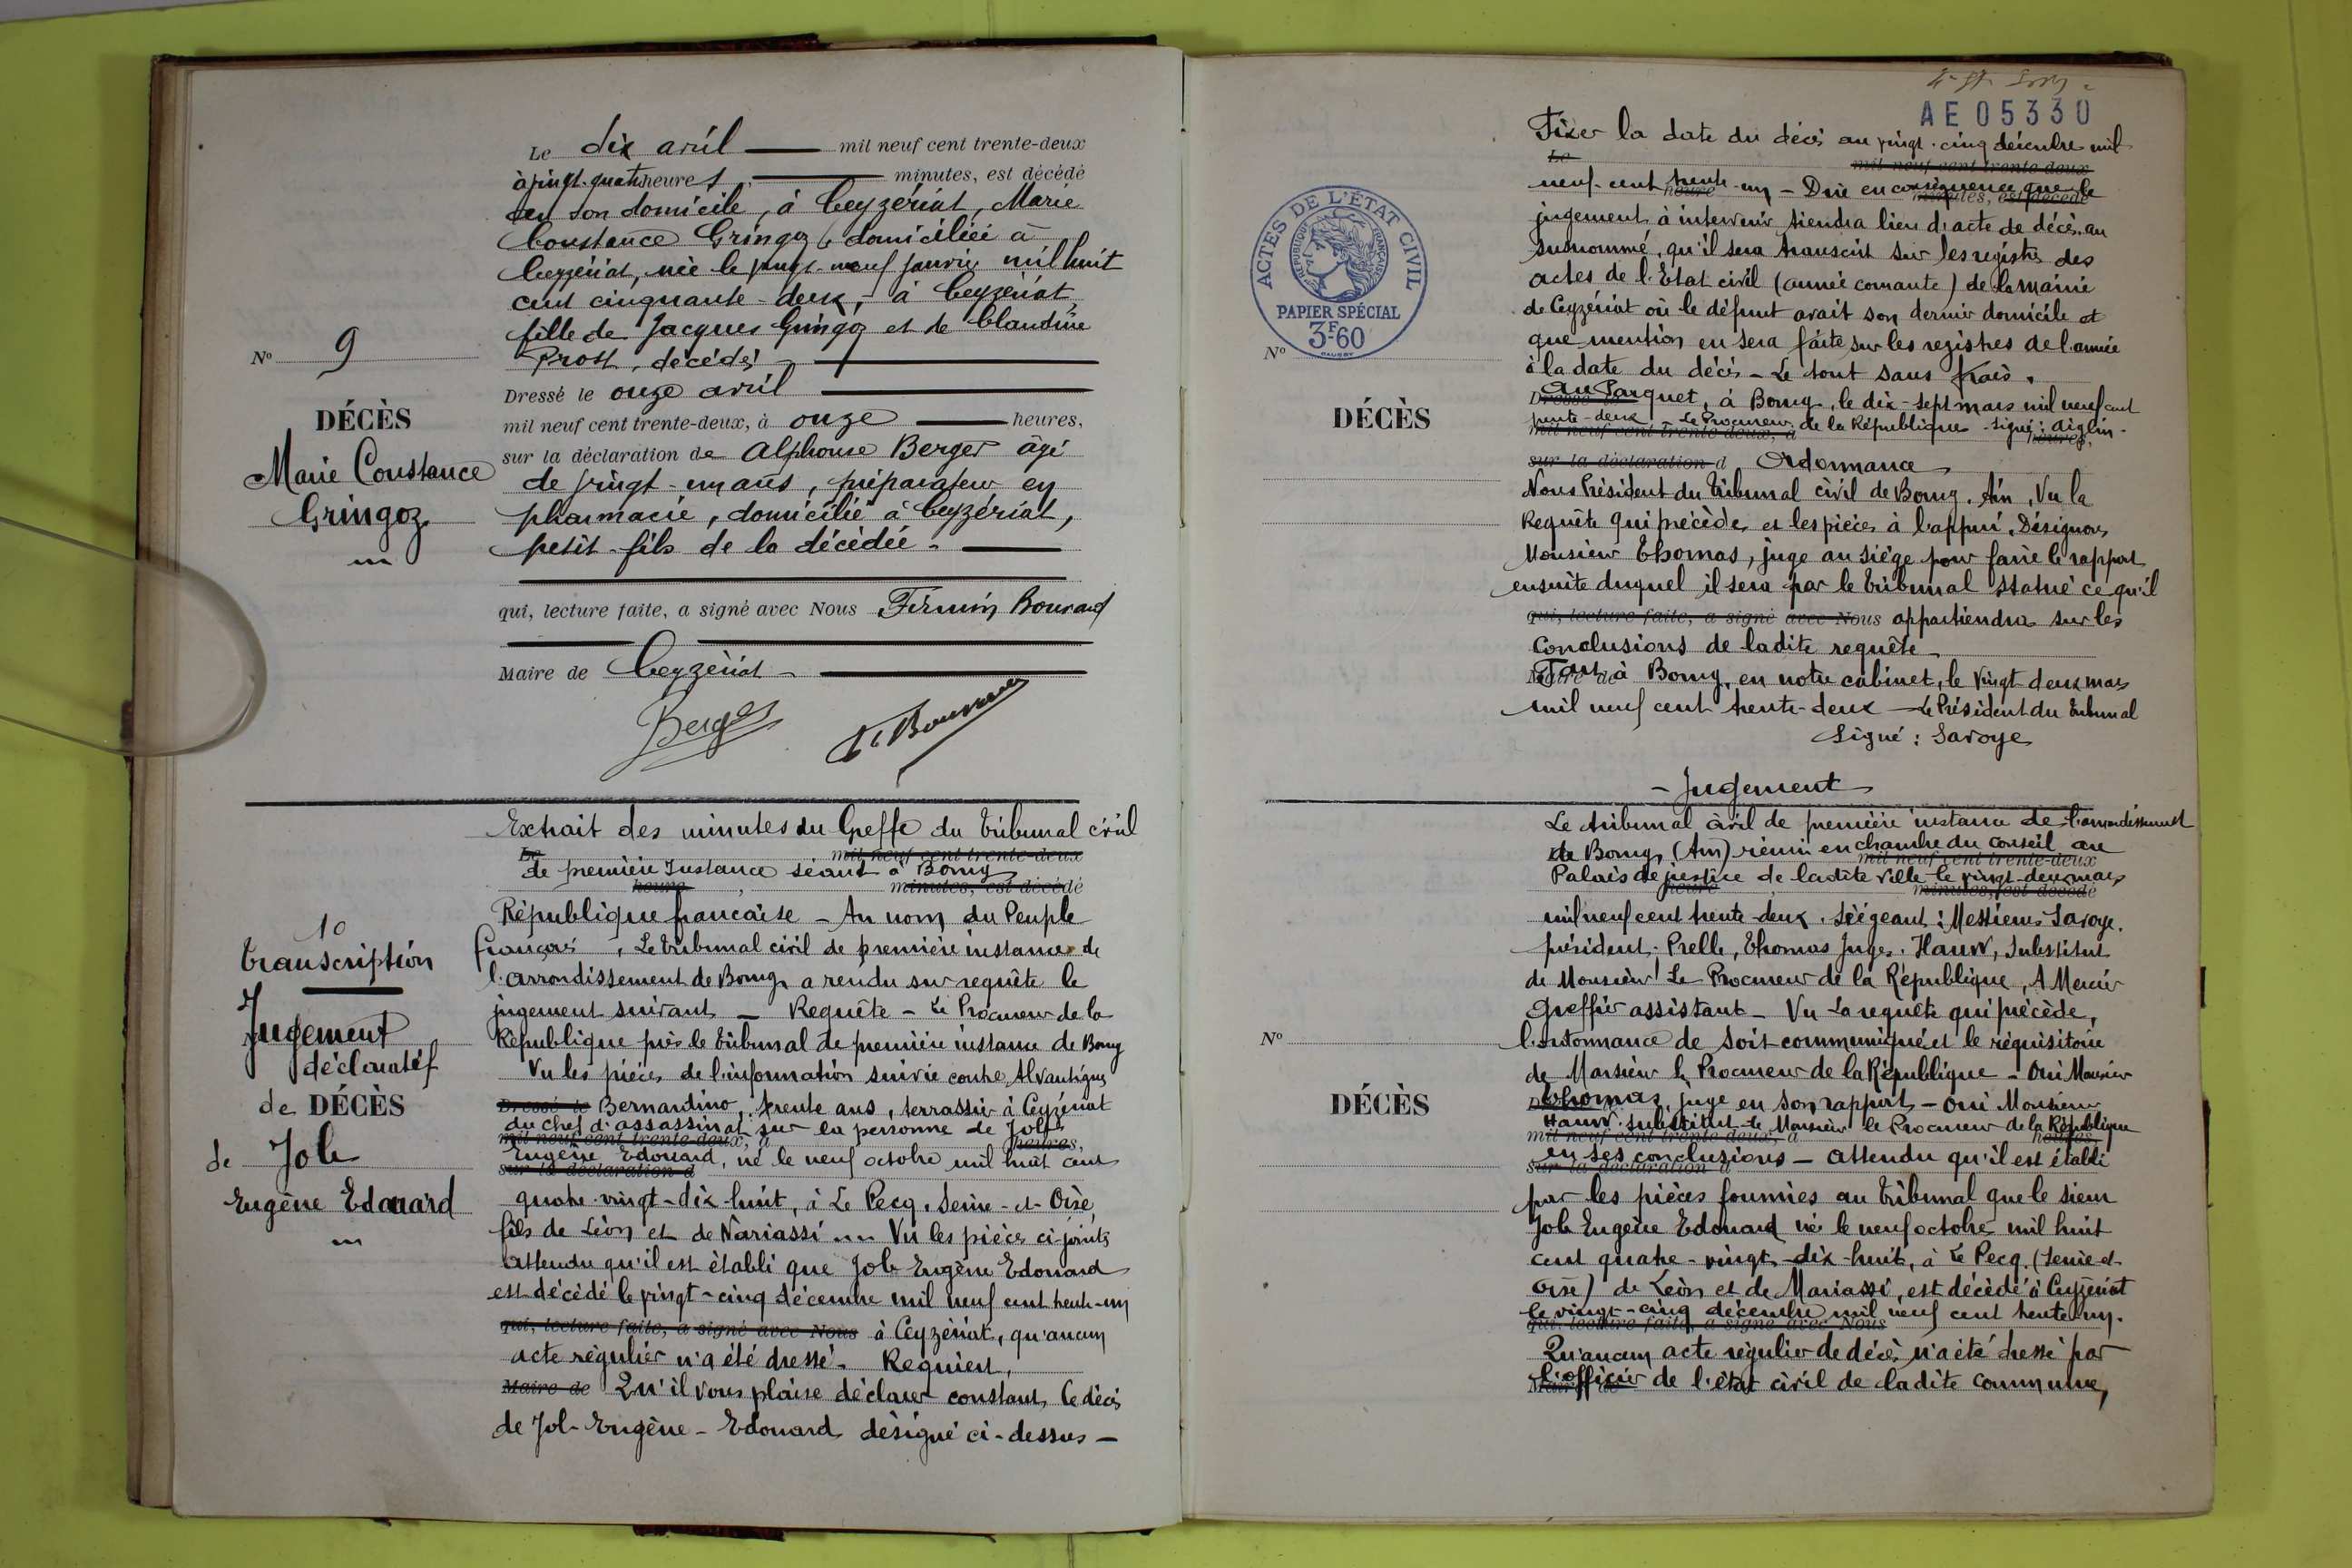 Le dix avril mil neuf cent trente-deux
à vingt-quatre heures minutes, est décédé
en son domicile, à Ceyzériat, Marie
Constance Gringoz, domiciliée à
Ceyzériat, née le vingt-neuf janvier mil huit
cent cinquante-deux, à Ceyzériat
fille de Jacques Gringoz et de Claudine
Prost, décédés
Dressé le onze avril
mil neuf cent trente-deux, à onze heures,
sur la déclaration de Alphonse Berger âgé
de vingt-un ans, préparateur en
pharmacie, domicilié à Ceyzériat,
petit-fils de la décédée.
qui, lecture faite, a signé avec Nous Firmin
Maire de Ceyzériat
Berger
Nº 9
DÉCÈS
Marie Constance
Gringoz
Extrait des minutes du Greffe du Tribunal civil
Le mil neuf cent trente-deux
de première Instance séant à Bourg
heure , minutes, est décédé
République française - Au nom du Peuple
français, Le tribunal civil de première instance de
l'arrondissement de Bourg a rendu sur requête le
jugement suivant - Requête - Le Procureur de la
République près le tribunal de première instance de Bourg
Vu les pièces de l'information suivie contre Alvantigus
Dressé le Bernardino, trente ans, terrassier à Ceyzériat
du chef d'assassinat sur la personne de Job
mil neuf cent trente-deux, à heures,
Eugène Edouard, né le neuf octobre mil huit cent
sur la déclaration d
quatre-vingt-dix-huit, à Le Pecq, Seine-et-Oise,
fils de Léon et de Nariassi Vu les pièces ci-jointes
Attendu qu'il est établi que Job Eugène Edouard
est décédé le vingt-cinq décembre mil neuf cent trente-un
qui, lecture faite, a signé avec Nous à Ceyzériat, qu'aucun
acte régulier n'a été dressé - Requiert,
Maire de Qu'il vous plaise déclarer constant, le décès
de Job-Eugène-Edouard désigné ci-dessus -
10
Transcription
Jugement
déclaratif
de DÉCÈS
de Job
Eugène Edouard
AE05330
Fixer la date du décès au vingt-cinq décembre mil
Le mil neuf cent trente-deux
neuf-cent trente-un - Dire en conséquence que le
heure minutes, est décédé
jugement à intervenir tiendra lieu d'acte de décès au
surnommé, qu'il sera transcrit sur les registres des
actes de l'Etat civil (année courante) de la mairie
de Ceyzériat où le défunt avait son dernier domicile et
que mention en sera faite sur les registres de l'année
à la date du décès - Le tout sans frais.
Au Parquet, à Bourg, le dix-sept mars mil neuf cent
Dressé le
trente-deux - Le Procureur de la République - Signé: Aiglin -
mil neuf cent trente-deux, à heures,
sur la déclaration d Ordonnance
Nous Président du Tribunal civil de Bourg. Ain, Vu la
Requête qui précède, et les pièces à l'appui. Désignons
Monsieur Thomas, juge au siège pour faire le rapport
ensuite duquel il sera par le tribunal statué ce qu'il
qui, lecture faite, a signé avec Nous appartiendra sur les
Conclusions de ladite requête
Maire de Fait à Bourg, en notre cabinet, le vingt deux mars
mil neuf cent trente-deux - Le Président du tribunal
Signé: Savoye
ACTES DE L'ÉTAT CIVIL
RÉPUBLIQUE FRANÇAISE
PAPIER SPÉCIAL
3F60
Nº
DÉCÈS
- Jugement
Le tribunal civil de première instance de l'arrondissement
de Bourg, (Ain) réuni en chambre du conseil au
mil neuf cent trente-deux
Palais de justice de ladite ville le vingt-deux mars
heure minutes, est décédé
mil neuf cent trente-deux. Siégeant: Messieurs Savoye,
président. Prelle, Thomas Juges. Hauw, Substitut
de Monsieur Le Procureur de la République, A Mercier
Greffier assistant - Vu la requête qui précède,
l'ordonnance de soit-communiqué et le réquisitoire
de Monsieur le Procureur de la République - Oui Monsieur
Thomas, juge en son rapport - Oui Monsieur
Hauw, substitut de Monsieur le Procureur de la République
mil neuf cent trente-deux, à heures,
en ses conclusions - Attendu qu'il est établi
sur la déclaration d
par les pièces fournies au tribunal que le sieur
Job Eugène Edouard né le neuf octobre mil huit
cent quatre-vingt-dix-huit, à Le Pecq, (Seine-et-
Oise) de Léon et de Mariassi, est décédé à Ceyzériat
le vingt-cinq décembre mil neuf cent trente-un.
qui, lecture faite, a signé avec Nous
Qu'aucun acte régulier de décès n'a été dressé par
Maire de l'officier de l'état civil de ladite commune,
Nº
DÉCÈS